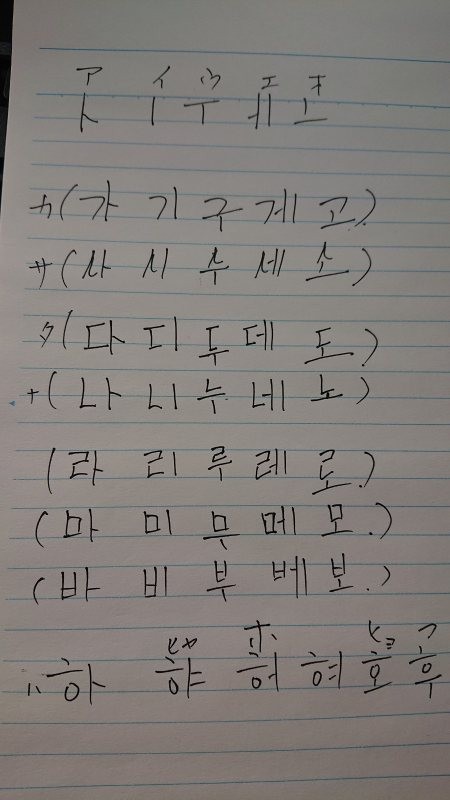 ア イ ウ エ オ
ㅏ ㅣ ㅜ ㅔ ㅗ
カ (가 기 구 게 고.)
サ (사 시 수 세 소)
タ (다 디 두 데 도.)
ナ (나 니 누 네 노)
(라 리 루 레 로.)
(마 미 무 메 모.)
(바 비 부 베 보.)
ヒャ ホ ヒョ フ
ハ 하 햐 허 혀 호 후